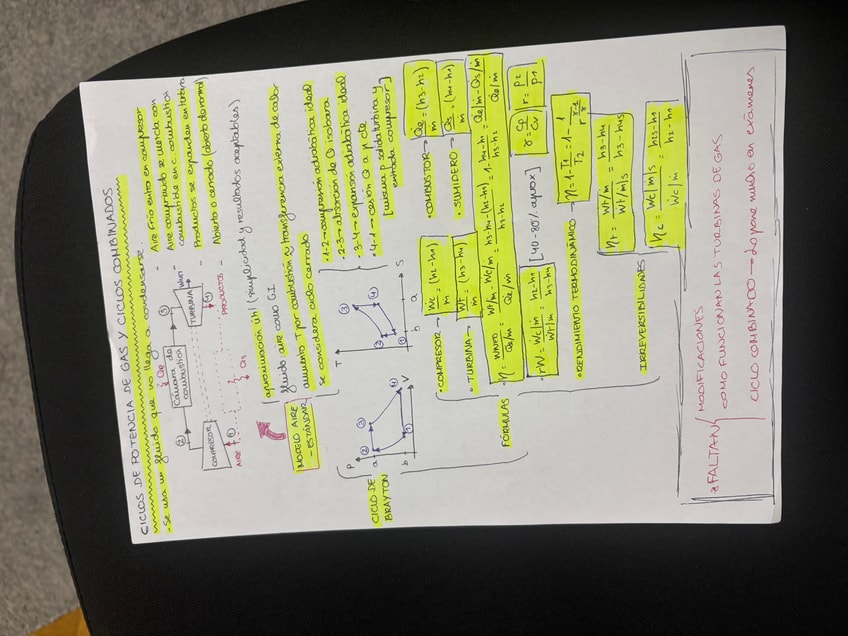 CICLOS DE POTENCIA DE GAS Y CICLOS COMBINADOS
- Se usa un fluido que no llega a condensarse.
Qe
Cámara de combustión
②
③
COMPRESOR
TURBINA
①
④
AIRE
PRODUCTOS
Qs
- Aire frío entra en compresor
- Aire comprimido se mezcla con
combustible en c. combustión
- Productos se expanden en turbina
- Abierto o cerrado (abierto de normal)
MODELO AIRE
- ESTÁNDAR
aproximación útil (simplicidad y resultados aceptables)
fluido aire como G.I
aumento T por combustión = transferencia externa de calor
se considera ciclo cerrado
CICLO DE
BRAYTON
P
a
b
V
① ② ③ ④
T
b a
S
① ② ③ ④
• 1-2 → compresión adiabática ideal
• 2-3 → absorción de Q isobara
• 3-4 → expansión adiabática ideal
• 4-1 → cesión Q a p cte
[misma p salida turbina y
entrada compresor]
FÓRMULAS
• COMPRESOR → Wc/m = (h2-h1)
• TURBINA → Wt/m = (h3-h4)
• COMBUSTOR → Qe/m = (h3-h2)
• SUMIDERO → Qs/m = (h4-h1)
• η = WNETO/Qe/ṁ = Wt/ṁ - Wc/ṁ / Qe/ṁ = h3-h4-(h2-h1) / h3-h2 = 1 - h4-h1 / h3-h2 = Qe/ṁ - Qs/ṁ / Qe/ṁ
• rW = Wc/ṁ / Wt/ṁ = h2-h1 / h3-h4 [40-80% aprox]
γ = Cp/Cv
r = P2/P1
• RENDIMIENTO TERMODINÁMICO → η = 1 - T1/T2 = 1 - 1/r^(γ-1/γ)
IRREVERSIBILIDADES
ηt = Wt/ṁ / Wt/ṁ)s = h3-h4 / h3-h4s
ηc = Wc/ṁ)s / Wc/ṁ = h2s-h1 / h2-h1
* FALTAN
MODIFICACIONES
COMO FUNCIONAN LAS TURBINAS DE GAS
CICLO COMBINADO → Lo pone mucho en exámenes